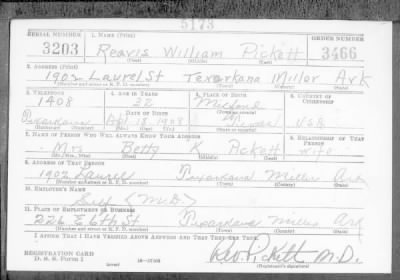 5173
SERIAL NUMBER 1. NAME (Print) ORDER NUMBER
3203 Reavis William Pickett 3466
(First) (Middle) (Last)
2. ADDRESS (Print)
1902 Laurel St Texarkana Miller Ark
(Number and street or R. F. D. number) (Town) (County) (State)
3. TELEPHONE 4. AGE IN YEARS 5. PLACE OF BIRTH 6. COUNTRY OF CITIZENSHIP
1408 32
DATE OF BIRTH
Texarkana Apr 18 1908 USA
7. NAME OF PERSON WHO WILL ALWAYS KNOW YOUR ADDRESS 8. RELATIONSHIP OF THAT PERSON
Mrs Betty K Pickett Wife
(Mr., Mrs., Miss) (First) (Middle) (Last)
9. ADDRESS OF THAT PERSON
1902 Laurel Texarkana Miller Ark
(Number and street or R. F. D. number) (Town) (County) (State)
10. EMPLOYER'S NAME
Self (M.D.)
11. PLACE OF EMPLOYMENT OR BUSINESS
226 E 6th St Texarkana Miller Ark
(Number and street or R. F. D. number) (Town) (County) (State)
I AFFIRM THAT I HAVE VERIFIED ABOVE ANSWERS AND THAT THEY ARE TRUE.
REGISTRATION CARD
D. S. S. Form 1 (over) 16-17105 Pickett M.D.
(Registrant's signature)